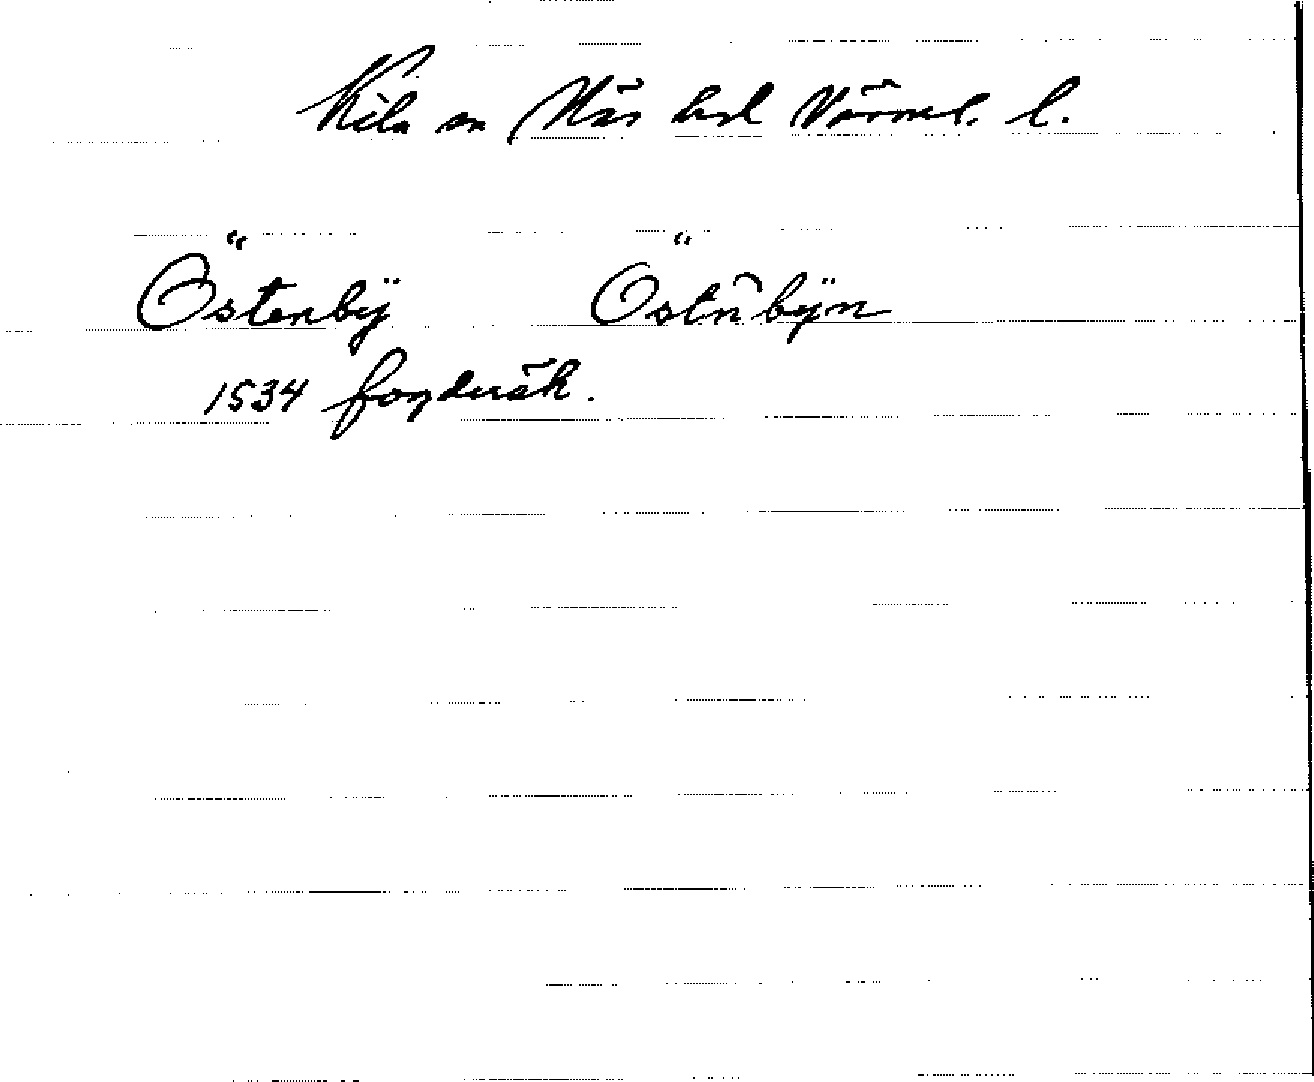 Kila sn Näs hd Värml. l.
Östenbÿ Östnbÿn
1534 fogderäk.